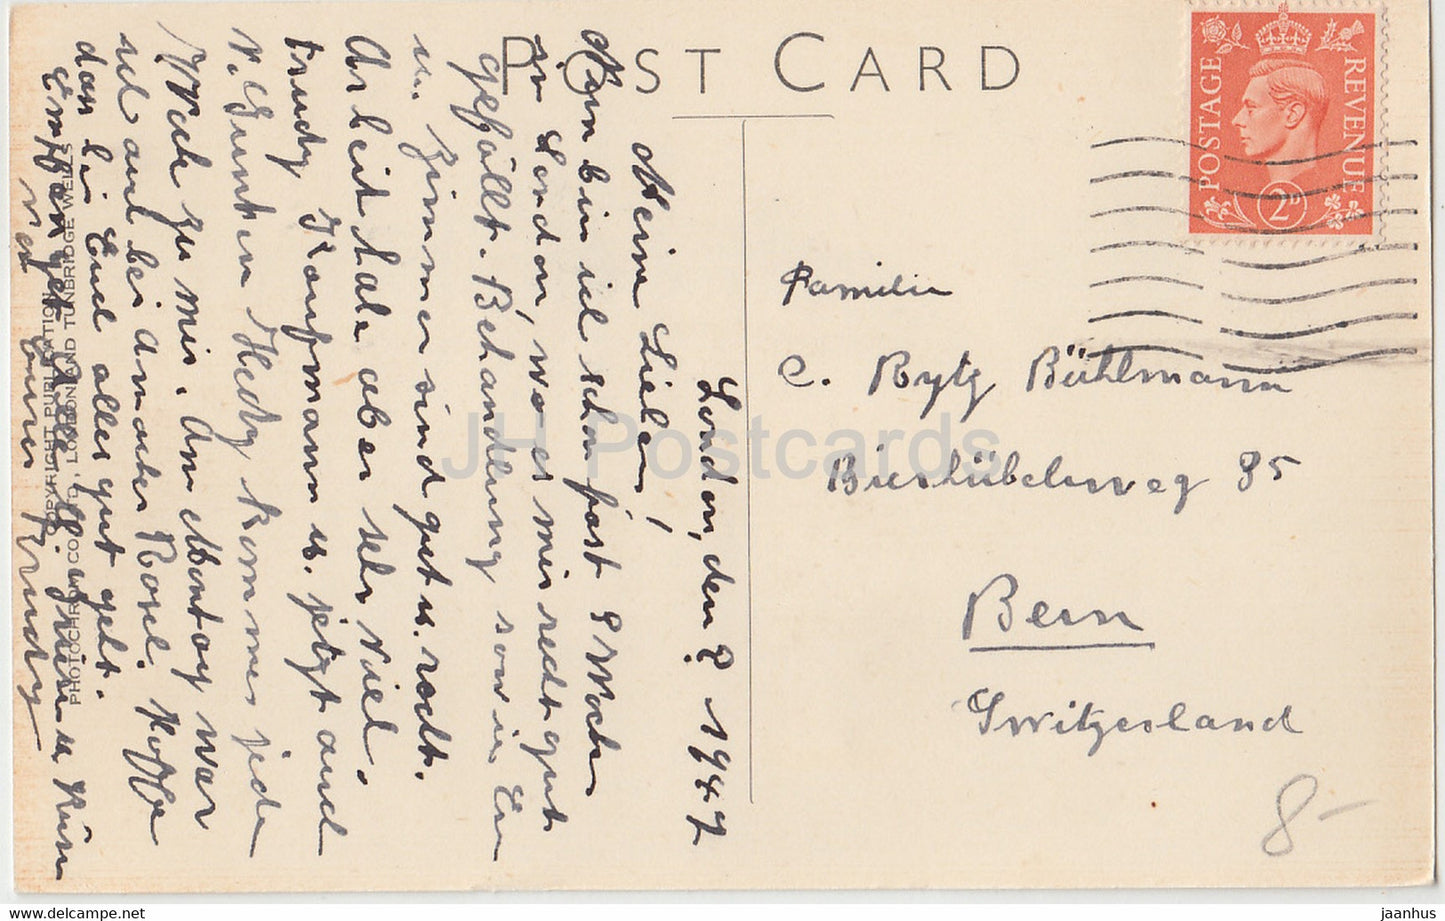 POST CARD
POSTAGE
REVENUE
2D
London, den ? 1947
Meine Lieben!
Nun bin ich schon fast 8 Wochen
in London, wo es mir recht gut
gefällt. Behandlung sowie Essen
u. Zimmer sind gut u. recht.
Arbeit habe aber sehr viel.
Trudy Kaufmann u. jetzt auch
v. Gunten Hedy kommen jede
Woche zu mir. Am Montag war
ich auch bei Amacher Rosel. Hoffe
das bei Euch alles gut geht.
Empfanget alle Grüsse u. Küsse
von Eurer Trudy
COPYRIGHT PUBLICATION
PHOTOCHROM CO. LTD., LONDON AND TUNBRIDGE WELLS
Familie
C. Rytz Bühlmann
Bierhübeliweg 35
Bern
Switzerland
8-
JH Postcards
delcampe.net
jaanhus